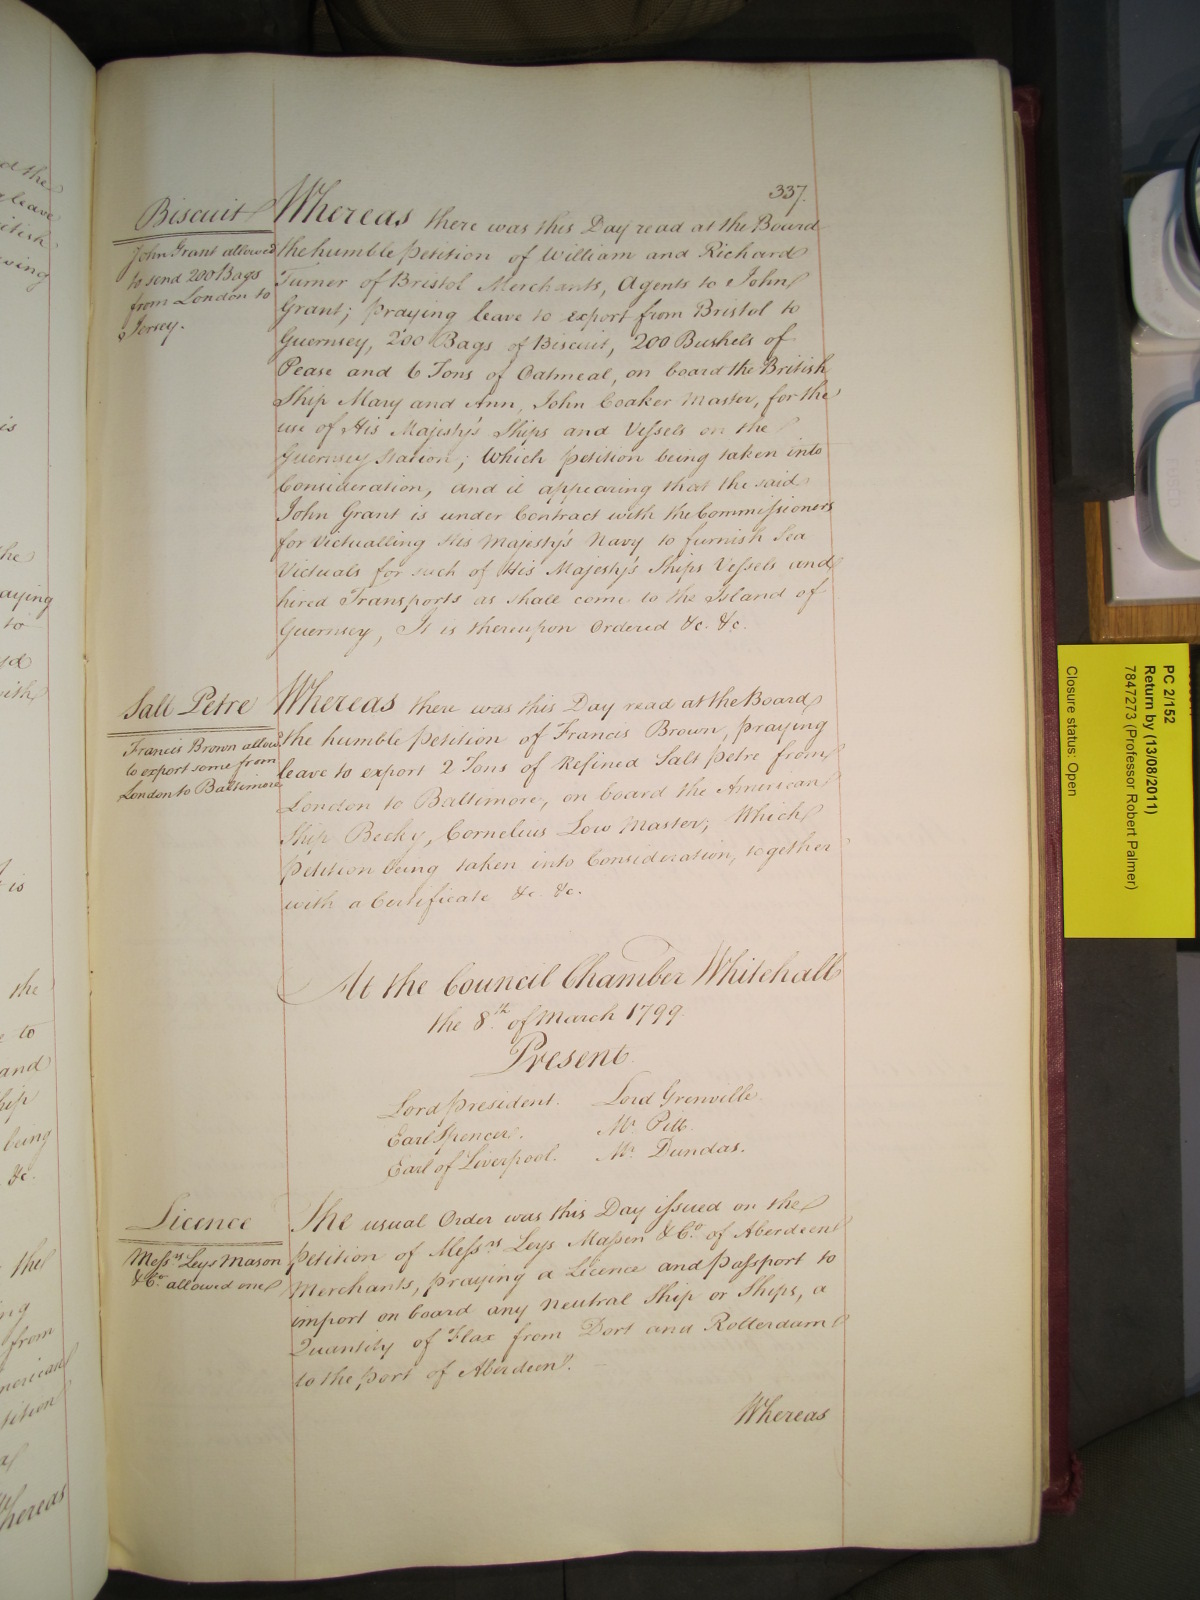 337.
Biscuit
John Grant allowed
to send 200 Bags
from London to
Jersey.
Whereas there was this Day read at the Board
the humble Petition of William and Richard
Turner of Bristol Merchants, Agents to John
Grant; praying leave to export from Bristol to
Guernsey, 200 Bags of Biscuit, 200 Bushels of
Pease and 6 Tons of Oatmeal, on board the British
Ship Mary and Ann, John Coaker Master, for the
use of His Majesty's Ships and Vessels on the
Guernsey Station; Which Petition being taken into
Consideration, and it appearing that the said
John Grant is under Contract with the Commissioners
for Victualling His Majesty's Navy to furnish Sea
Victuals for such of His Majesty's Ships Vessels and
hired Transports as shall come to the Island of
Guernsey, It is thereupon Ordered &c. &c.
Salt Petre
Francis Brown allow'd
to export some from
London to Baltimore
Whereas there was this Day read at the Board
the humble Petition of Francis Brown, praying
leave to export 2 Tons of Refined Salt Petre from
London to Baltimore, on board the American
Ship Becky, Cornelius Low Master; Which
Petition being taken into Consideration, together
with a Certificate &c. &c.
At the Council Chamber Whitehall
the 8.th of March 1799.
Present
Lord President. Lord Grenville.
Earl Spencer. Mr. Pitt.
Earl of Liverpool. Mr. Dundas.
Licence
Messrs. Leys Mason
& Co. allowed one
The usual Order was this Day issued on the
Petition of Messrs. Leys Massen & Co. of Aberdeen
Merchants, praying a Licence and Passport to
import on board any Neutral Ship or Ships, a
Quantity of Flax from Dort and Rotterdam
to the Port of Aberdeen.
Whereas
d the
leave
itish
ving
is
the
aying
to
yd
with
is
the
e to
and
hip
being
&c.
the
ng
from
merican
tition
al
hereas
PC 2/152
Return by (13/08/2011)
7847273 (Professor Robert Palmer)
Closure status: Open